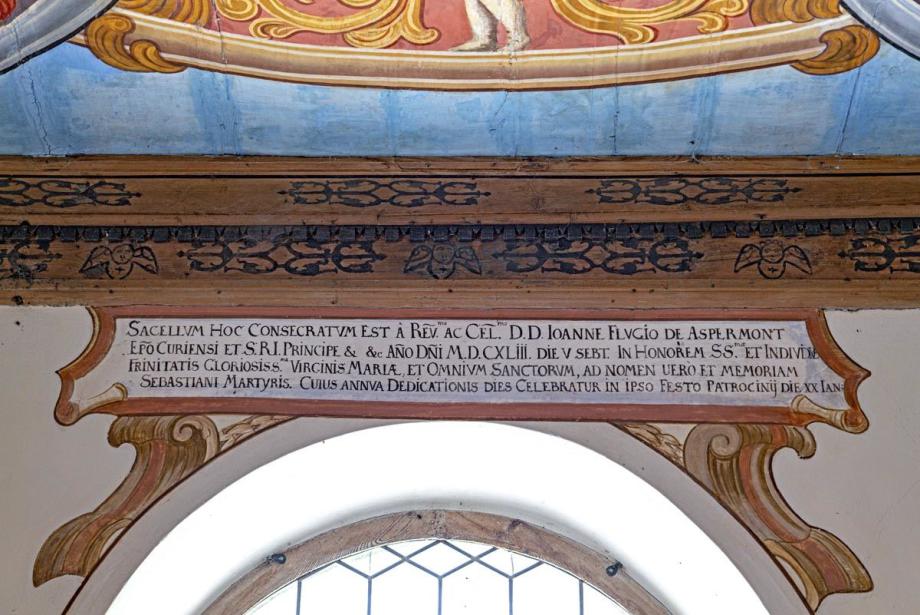 SACELLVM HOC CONSECRATVM EST À REṼ.ᵐᵒ AC CEL̃.ᵐᵒ D.D. IOANNE FLVGIO DE ASPERMONT
EP̃O CURIENSI ET S.R.I. PRINCIPE & &c. AÑO DÑI M.D.CXLIII. DIE V SEBT. IN HONOREM SS.ᵐᵃᵉ ET INDIVIDE
TRINITATIS GLORIOSISS.ᵐᵃ VIRGINIS MARIÆ, ET OMNIVM SANCTORVM, AD NOMEN UERO ET MEMORIAM
SEBASTIANI MARTYRIS. CUIUS ANNVA DEDICATIONIS DIES CELEBRATUR IN IPSO FESTO PATROCINIJ DIE XX IAN